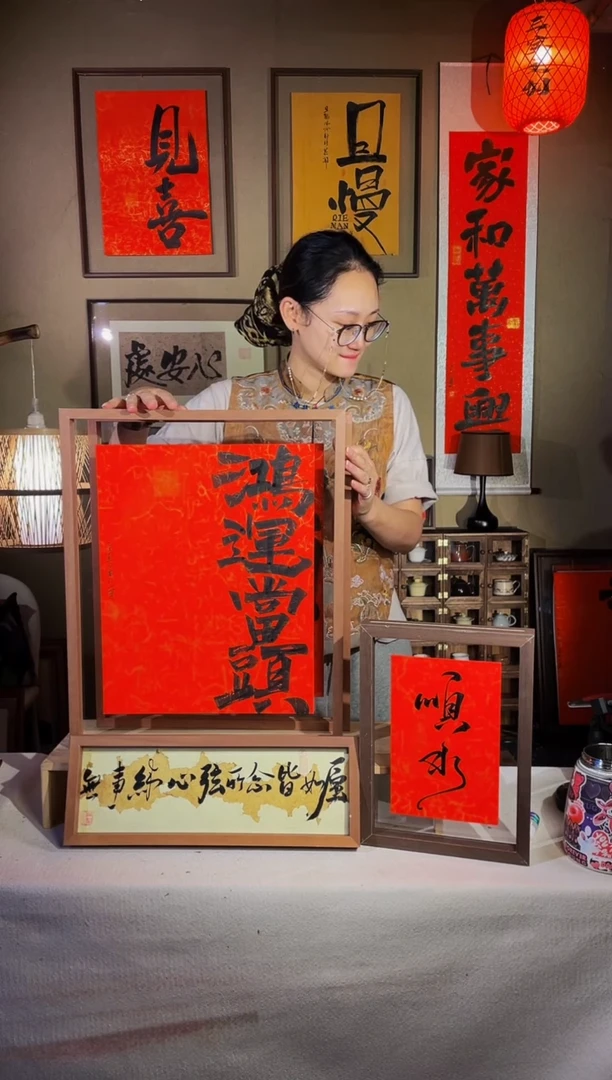 見喜
且慢
QIE
MAN
家和萬事興
心安處
鴻運當頭
無事絆心弦所念皆如愿
順水